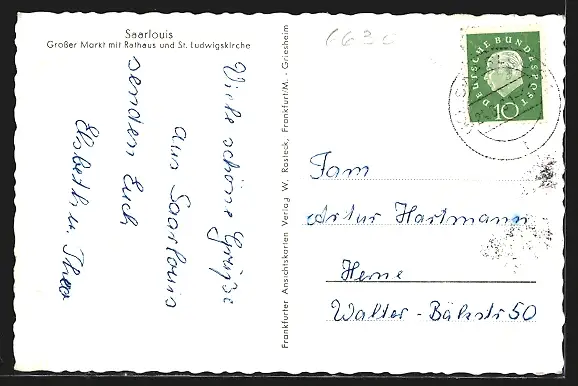 Saarlouis
Großer Markt mit Rathaus und St. Ludwigskirche
Viele schöne Grüße
aus Saarlouis
senden Euch
Elsbeth u. Theo
Frankfurter Ansichtskarten Verlag W. Rasleck, Frankfurt/M. - Griesheim
6620
DEUTSCHE BUNDESPOST
10
Fam
Artur Hartmann
Herne
Walter-Bälzstr 50